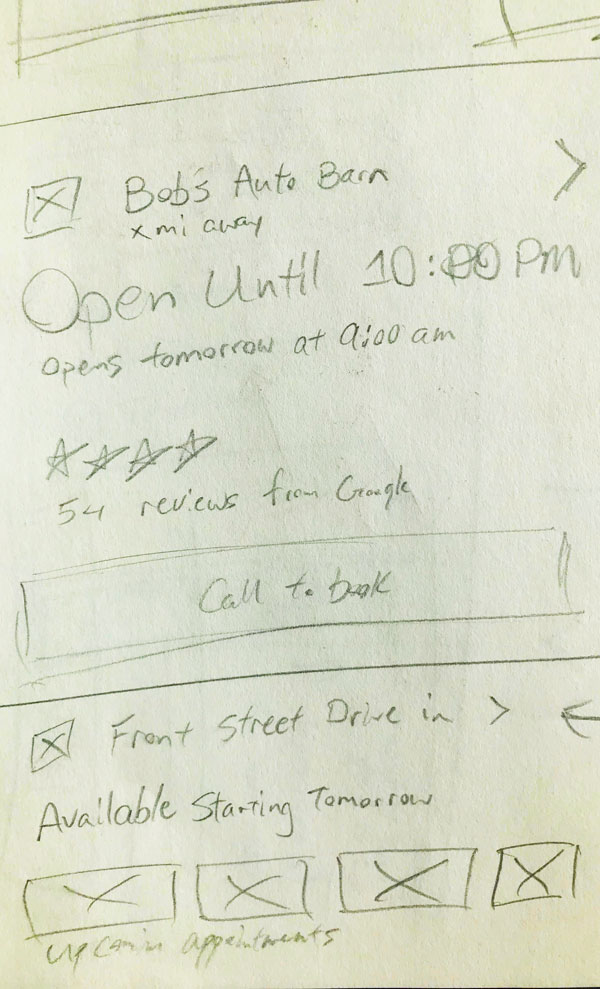 Bob's Auto Barn
x mi away
Open Until 10:00 PM
opens tomorrow at 9:00 am
54 reviews from Google
Call to book
Front Street Drive in >
Available Starting Tomorrow
upcoming appointments